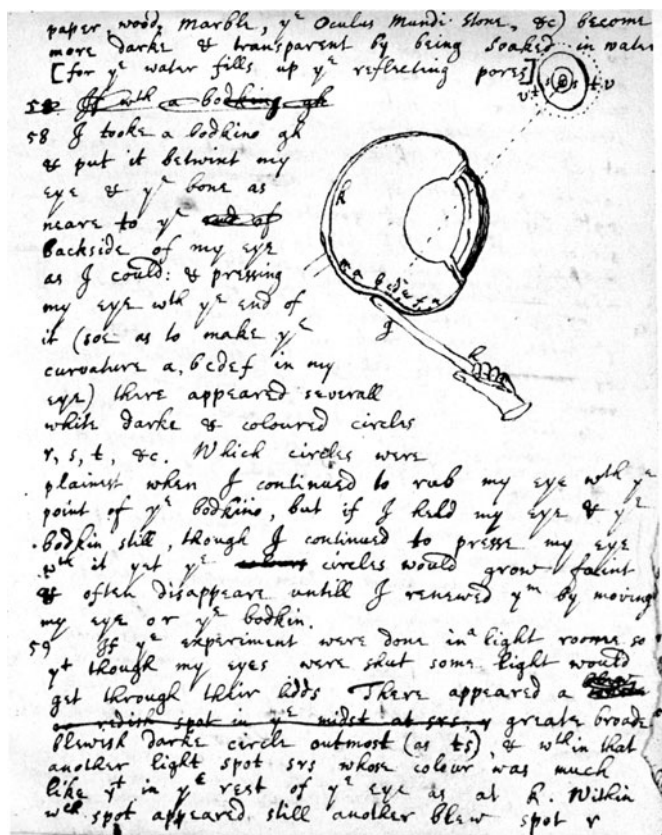 paper, wood, marble, yᵉ Oculus Mundi stone, &c) become
more darke & transparent by being soaked in water
[for yᵉ water fills up yᵉ reflecting pores]
58 If wᵗʰ a bodking gh
58 I tooke a bodkine gh
& put it betwixt my
eye & yᵉ bone as
neare to yᵉ end of
backside of my eye
as I could: & pressing
my eye wᵗʰ yᵉ end of
it (soe as to make yᵉ
curvature a, bcdef in my
eye) there appeared severall
white darke & coloured circles
r, s, t, &c. Which circles were
plainest when I continued to rub my eye wᵗʰ yᵉ
point of yᵉ bodkine, but if I held my eye & yᵉ
bodkin still, though I continued to presse my eye
wᵗʰ it yet yᵉ circles would grow faint
& often disappeare untill I renewed yᵐ by moving
my eye or yᵉ bodkin.
59 If yᵉ experiment were done in a light roome so
yᵗ though my eyes were shut some light would
get through their lidds There appeared a
redish spot in yᵉ midst at srs greate broade
blewish darke circle outmost (as ts) & wᵗʰin that
another light spot srs whose colour was much
like yᵗ in yᵉ rest of yᵉ eye as at k. Within
wᶜʰ spot appeared still another blew spot r